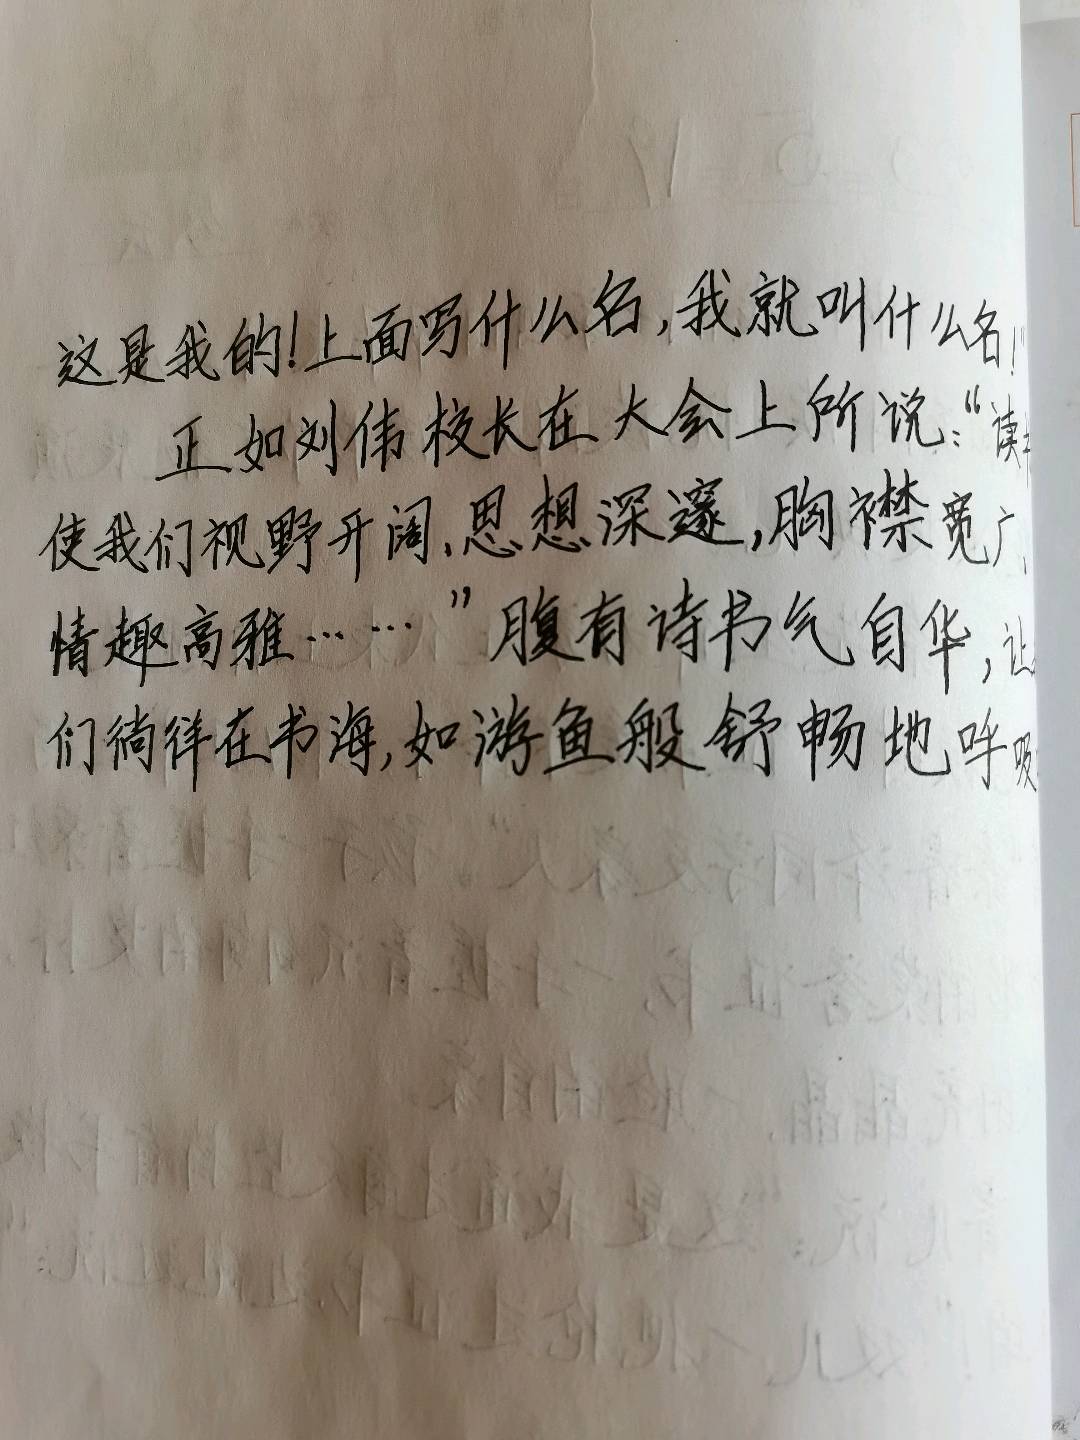 这是我的!上面写什么名,我就叫什么名!"
正如刘伟校长在大会上所说:“读书
使我们视野开阔,思想深邃,胸襟宽广,
情趣高雅……”腹有诗书气自华,让
们徜徉在书海,如游鱼般舒畅地呼吸